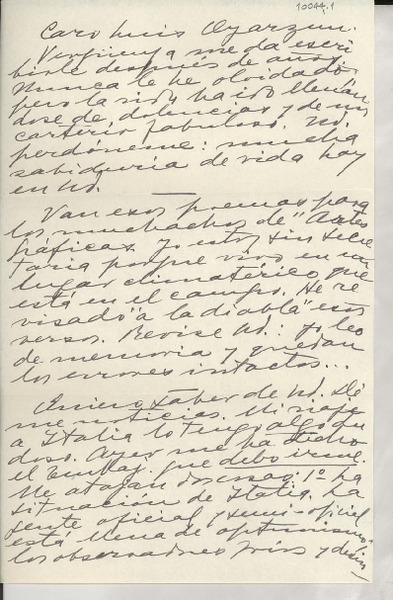 10044.1
Caro Luis Oyarzun.
Vergüenza me da escri
birle después de años.
Nunca le he olvidado,
pero la vida ha ido llenán
dose de dolencias y de un
carterío fabuloso. Ud.
perdóneme: mucha
sabiduría de vida hay
en Ud.
Van esos poemas para
los muchachos de "Artes
Gráficas. Yo estoy sin secre
taria porque vivo en un
lugar climatérico que
está en el campo. He re
visado "a la diabla" esos
versos. Revise Ud.: yo leo
de memoria y quedan
los errores intactos...
Quiero saber de Ud. Dé
me noticias. Mi viaje
a Italia lo tengo algo du
doso. Ayer me ha dicho
el Embaj. que debo irme.
Me atajan dos cosas: 1º la
situación de Italia. La
gente oficial y semi-oficial
está llena de optimismo.
los observadores fríos y